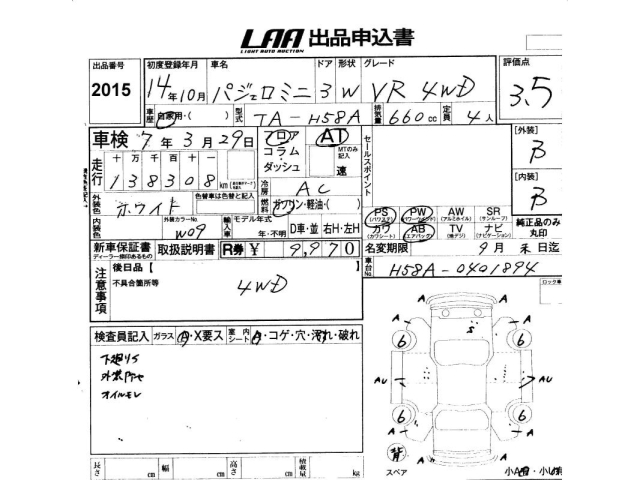 LAA 出品申込書
LIGHT AUTO AUCTION
出品番号 初度登録年月 車名 ドア 形状 グレード 評価点
2015 14年10月 パジェロミニ 3 W VR 4WD 3.5
車歴 自家用・( ) 型式 TA-H58A 排気量 660cc 定員 4人
車検 7年3月29日
フロア
コラム・
ダッシュ
AT
MTのみ記入
速
セールスポイント
[外装]
B
[内装]
B
走行 十万 万 千 百 十
138308 km
冷房 AC
燃料 ガソリン・軽油・( )
外装色 ホワイト
色替車は色替と記入
内装色
外装カラーNo.
W09
輸入車 モデル年式
年・不明 D車・並 右H・左H
PS (パワーステ) PW (パワーウインド) AW (アルミホイル) SR (サンルーフ)
カワ (カワシート) AB (エアバック) TV (地デジ) ナビ (ナビゲーション)
純正品のみ
丸印
新車保証書
ディーラー捺印あるもの
取扱説明書 R券 ¥ 9,970
名変期限 9月 末日迄
車台No. H58A-0401894
注意事項
後日品【
不具合箇所等
4WD
検査員記入 ガラス A・X要ス 室内シート A・コゲ・穴・汚れ・破れ
下廻りS
オイルモレ
A A
A A
6 6
S
AU AU
6 6
A A
A A
背
スペア
長さ cm 幅 cm 高さ cm 積載量 kg